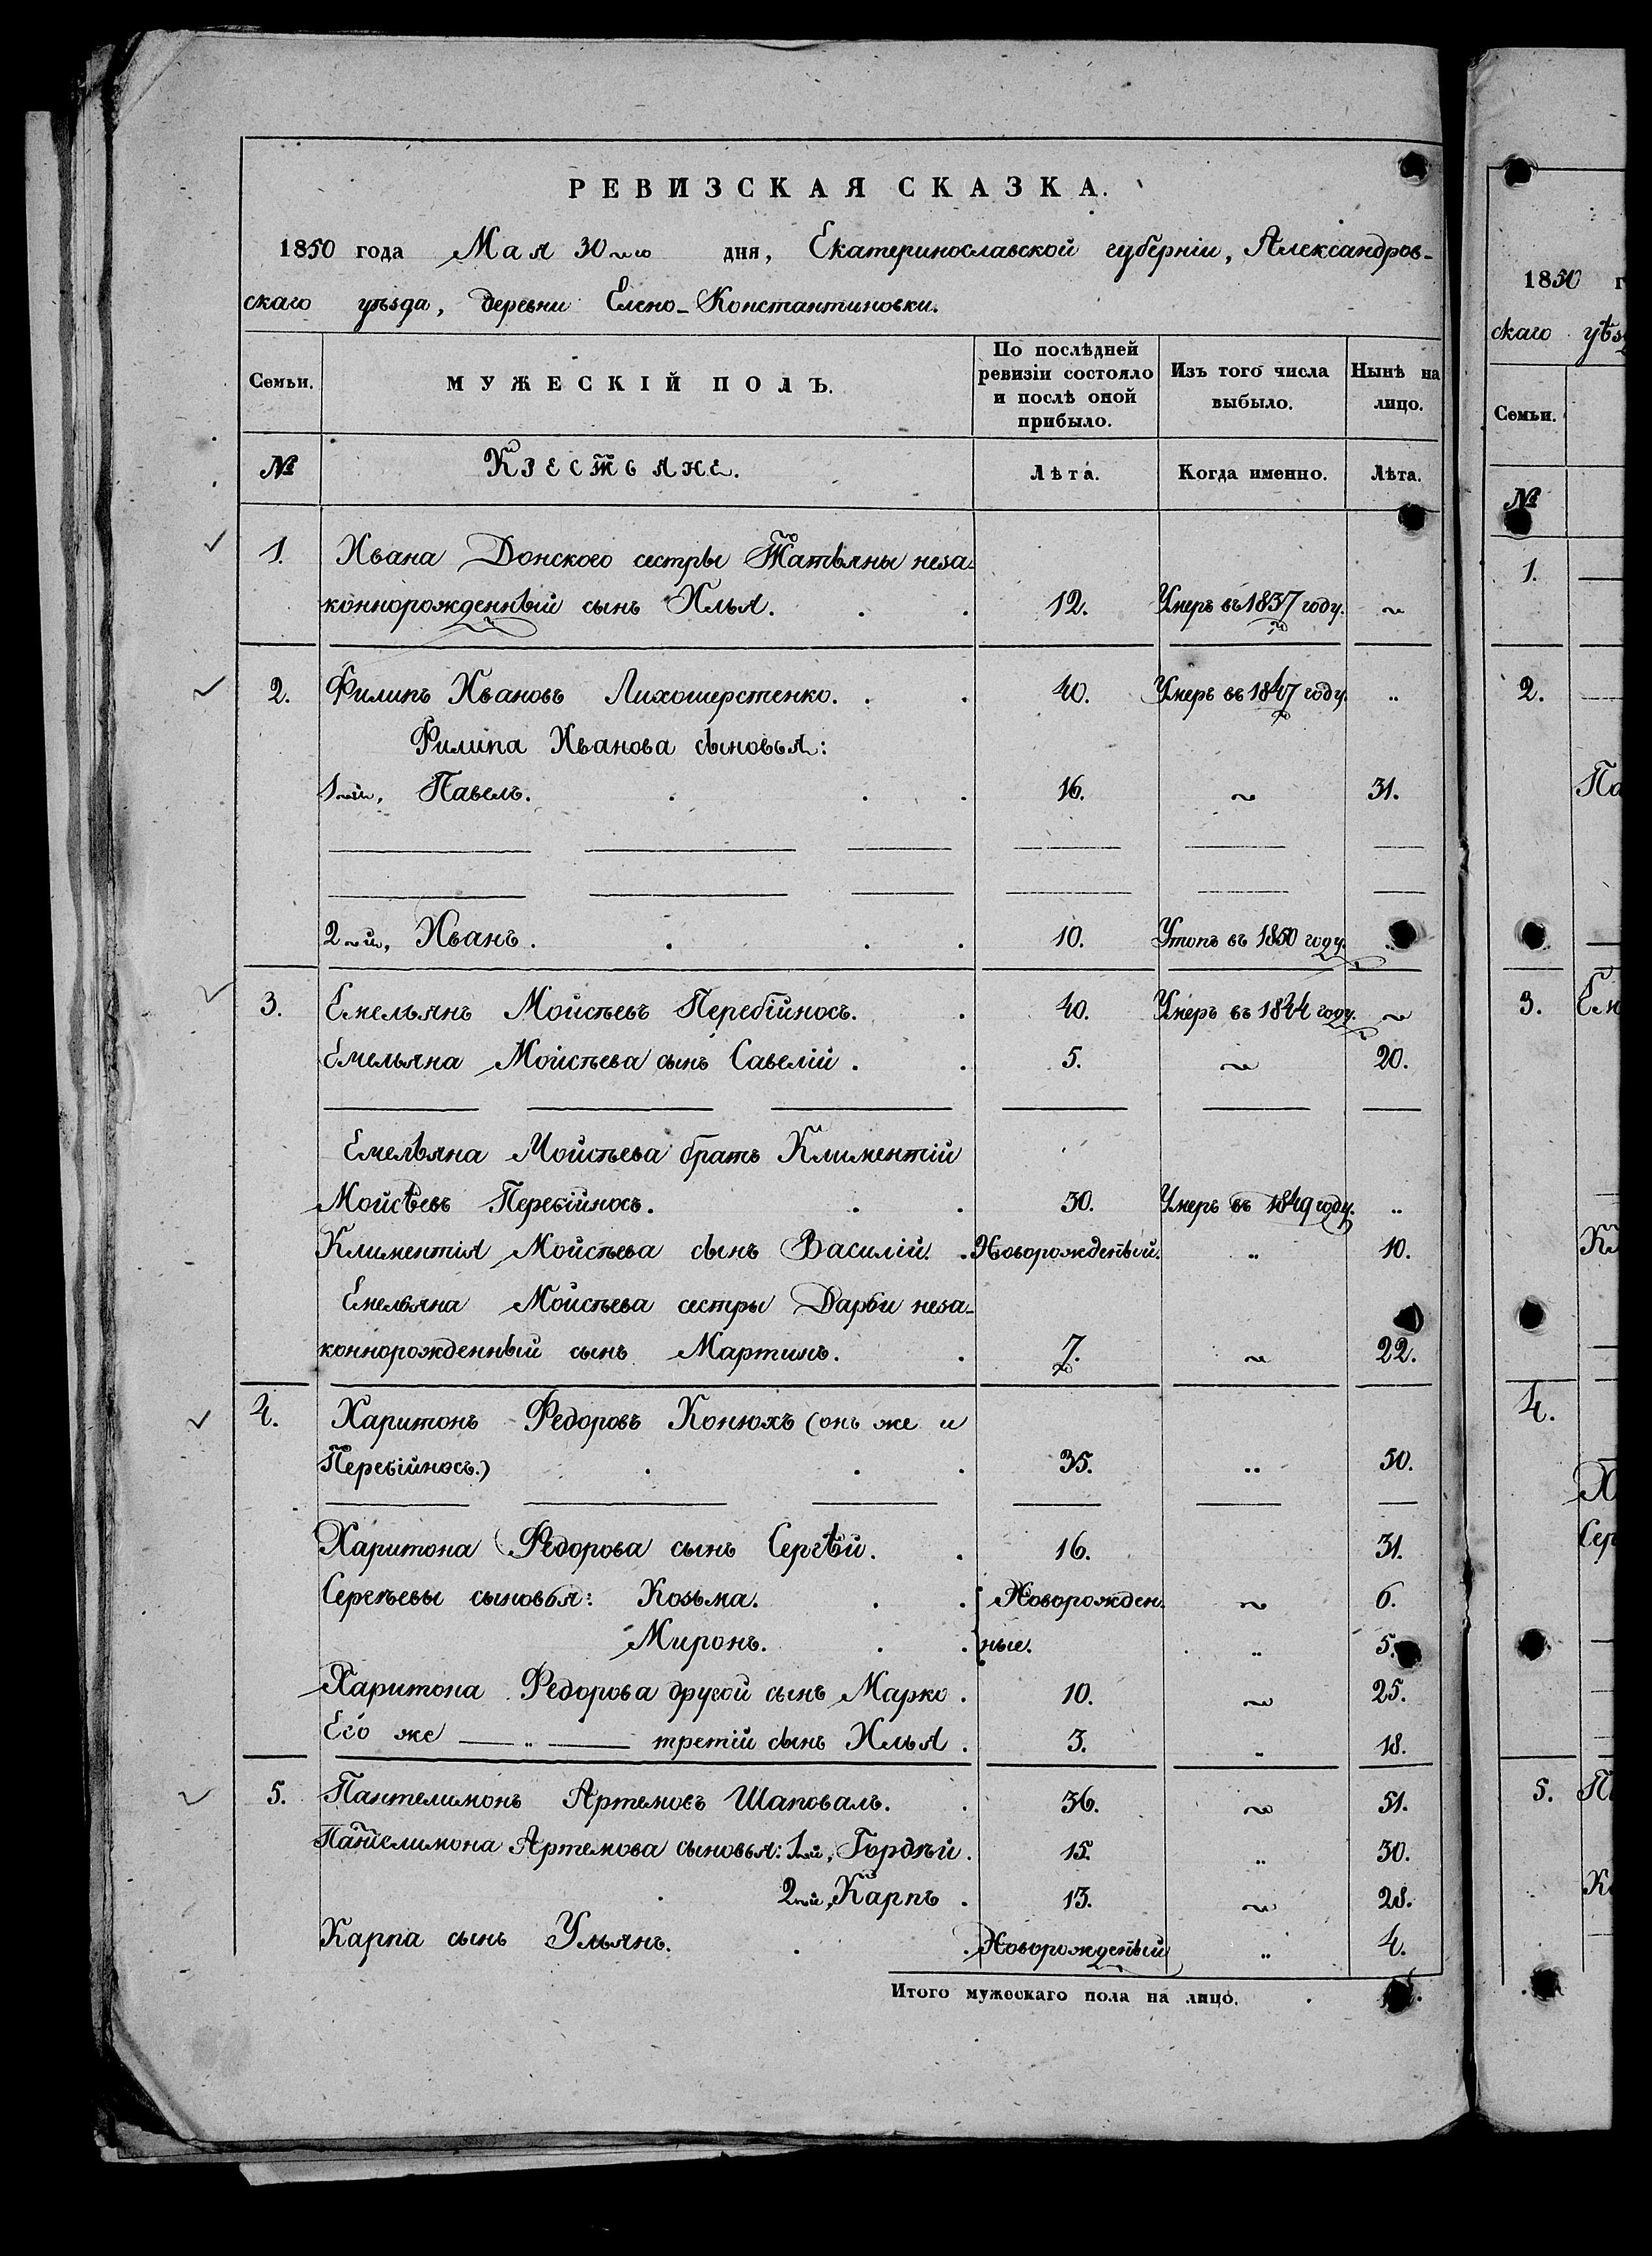 РЕВИЗСКАЯ СКАЗКА.
1850 года Мая 30го дня, Екатеринославской губерніи, Александров-
скаго уѣзда, деревни Елено-Константиновки.
Семьи. МУЖЕСКІЙ ПОЛЪ. По послѣдней ревизіи состояло и послѣ оной прибыло. Изъ того числа выбыло. Нынѣ на лицо.
№ Крестьяне. Лѣта. Когда именно. Лѣта.
1. Ивана Донского сестры Татьяны неза-
коннорожденный сынъ Илья. 12. Умеръ въ 1837 году. ~
2. Филипъ Ивановъ Лихошерстенко. 40. Умеръ въ 1847 году. „
Филипа Иванова сыновья:
1й, Павелъ. 16. ~ 31.
2й, Иванъ. 10. Утопъ въ 1850 году.
3. Емельянъ Мойсѣевъ Перебійносъ. 40. Умеръ въ 1844 году. ~
Емельяна Мойсѣева сынъ Савелій. 5. ~ 20.
Емельяна Мойсѣева братъ Климентій
Мойсѣевъ Перебійносъ. 30. Умеръ въ 1849 году. „
Климентія Мойсѣева сынъ Василій. Новорожденный. „ 10.
Емельяна Мойсѣева сестры Дарьи неза-
коннорожденный сынъ Мартинъ. 7. ~ 22.
4. Харитонъ Федоровъ Конюхъ (онъ же и
Перебійносъ.) 35. „ 50.
Харитона Федорова сынъ Сергѣй. 16. 31.
Сергѣевы сыновья: Козьма. Новорожден- ~ 6.
Миронъ. ные. „ 5.
Харитона Федорова другой сынъ Марко. 10. ~ 25.
Его же — „ — третій сынъ Илья. 3. „ 18.
5. Пантелимонъ Артемовъ Шаповалъ. 36. ~ 51.
Пантелимона Артемова сыновья: 1й, Гордѣй. 15. „ 30.
2й, Карпъ. 13. ~ 28.
Карпа сынъ Ульянъ. Новорожденный „ 4.
Итого мужескаго пола на лицо.
1850 г
скаго уѣз
Семьи.
№
1.
2.
Па
3. Ем
Кл
4.
Х
Сер
5. П
К